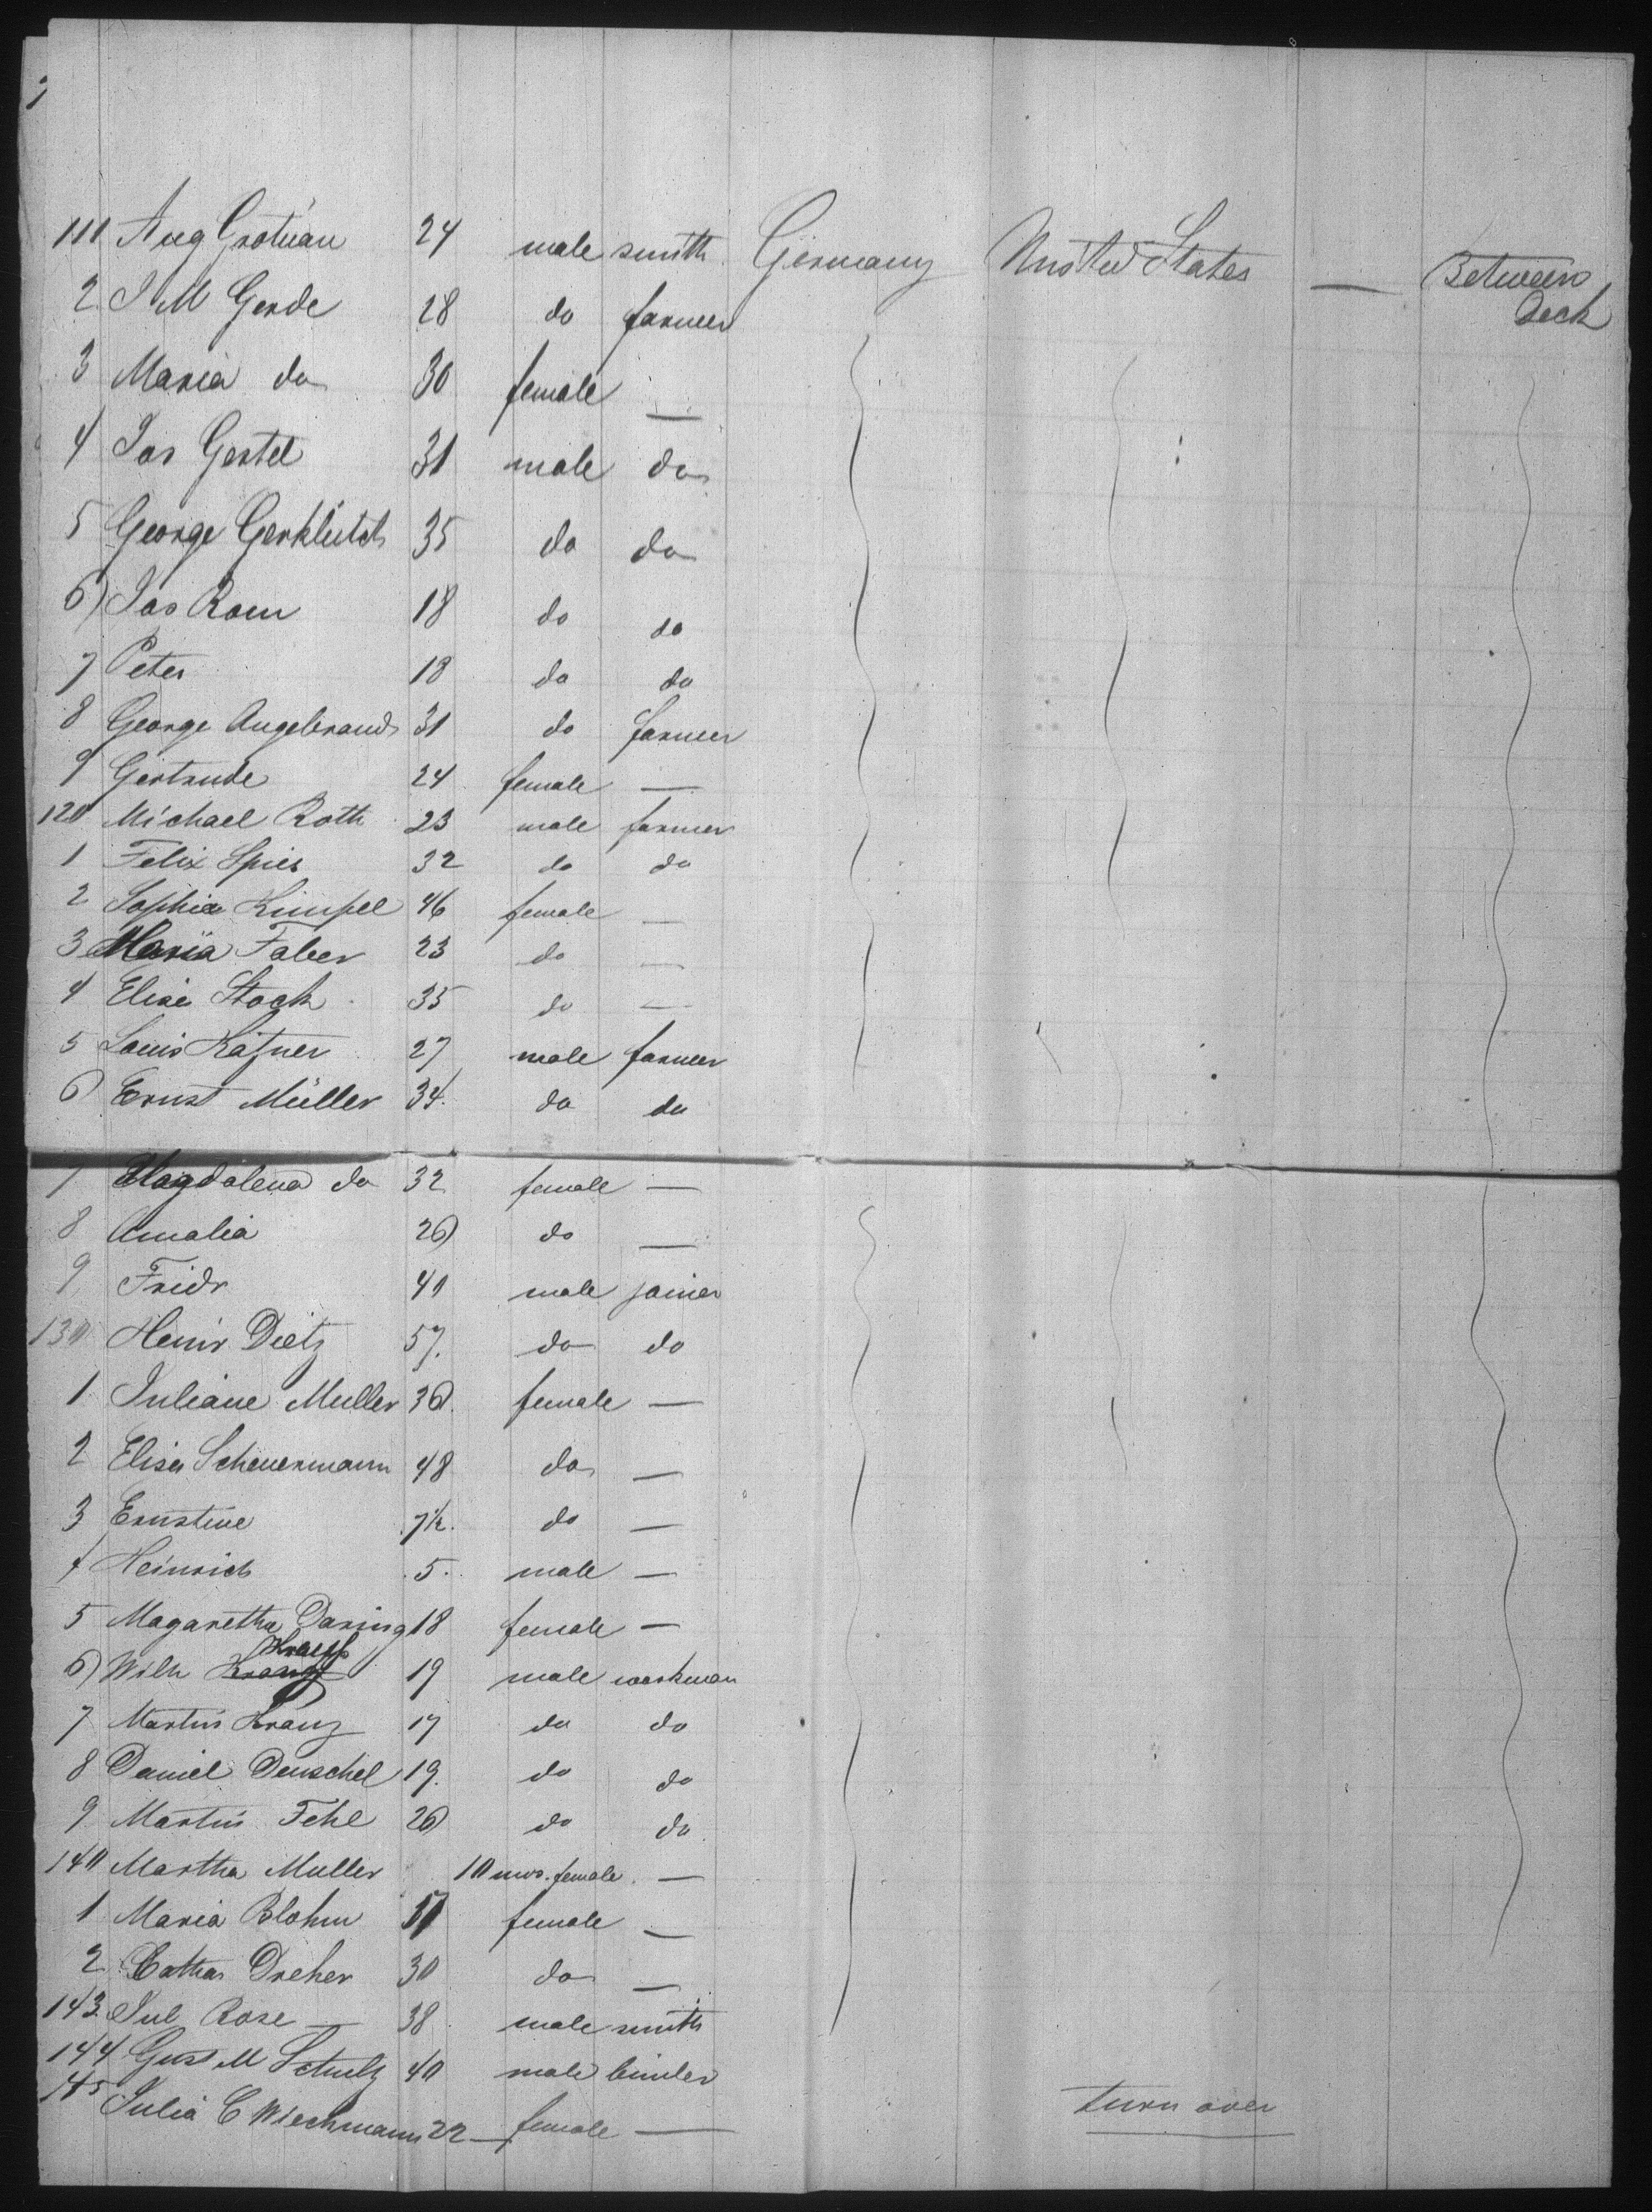 111 Aug Grotuan 24 male smith Germany United States — Between Deck
2 J M Gerde 28 do farmer
3 Maria do 30 female —
4 Jos Gertel 31 male do
5 George Gerklutch 35 do do
6 Jos Rom 18 do do
7 Peter 18 do do
8 George Angebrand 31 do farmer
9 Gertrude 24 female —
120 Michael Roth 23 male farmer
1 Felix Spies 32 do do
2 Sophie Kimpel 46 female —
3 Maria Faber 23 do —
4 Elise Stock 35 do —
5 Louis Katzner 27 male farmer
6 Ernst Müller 34 do do
7 Magdalena do 32 female —
8 Amalia 26 do —
9 Fridr 40 male joiner
130 Heinr Dietz 57. do do
1 Juliane Muller 36. female —
2 Elise Scheuermann 48 do —
3 Ernstine 7½. do —
4 Heinrich 5. male —
5 Magaretha Daring 18 female —
6 Wilh Krapp 19 male workman
7 Martin Kranz 17 do do
8 Daniel Deuschel 19. do do
9 Martin Fehl 26 do do
140 Martha Muller 10 mos. female —
1 Maria Blohm female —
2 Cathar Dreher 30 do —
143. Jul Rose — 38 male smith
144 Gust M Schulz 40 male binder
145 Julia C Wiechmann 22 — female —
turn over